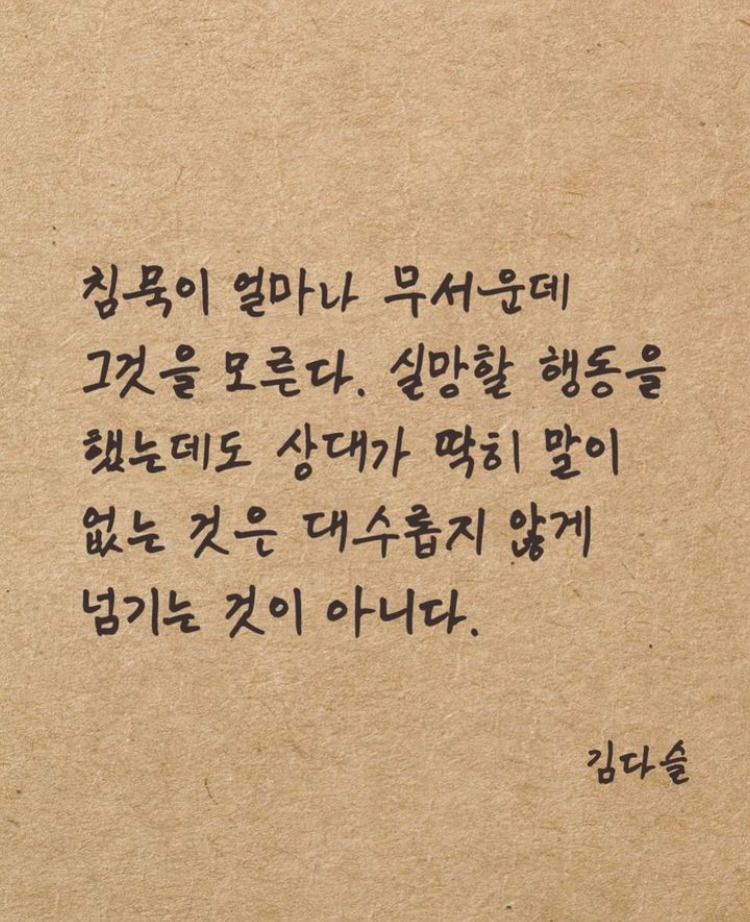 침묵이 얼마나 무서운데
그것을 모른다. 실망할 행동을
했는데도 상대가 딱히 말이
없는 것은 대수롭지 않게
넘기는 것이 아니다.
김다슬